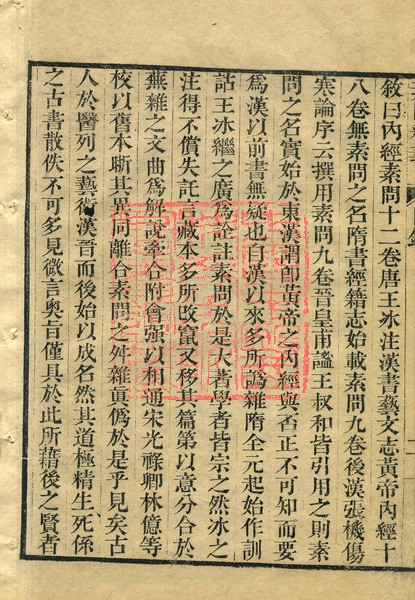 敘曰內經素問十二卷唐王冰注漢書藝文志黃帝內經十
八卷無素問之名隋書經籍志始載素問九卷後漢張機傷
寒論序云撰用素問九卷晉皇甫謐王叔和皆引用之則素
問之名實始於東漢謂卽黃帝之內經與否正不可知而要
爲漢以前書無疑也自漢以來多所譌雜隋全元起始作訓
詁王冰繼之廣爲詮註素問於是大著學者皆宗之然冰之
注得不償失託言藏本多所改竄又移其篇第以意分合於
蕪雜之文曲爲解說牽合附會強以相通宋光祿卿林億等
校以舊本斷其異同離合素問之舛雜黃僞於是乎見矣古
人於醫列之藝術漢晉而後始以成名然其道極精生死係
之古書散佚不可多見微言奧旨僅具於此所藉後之賢者